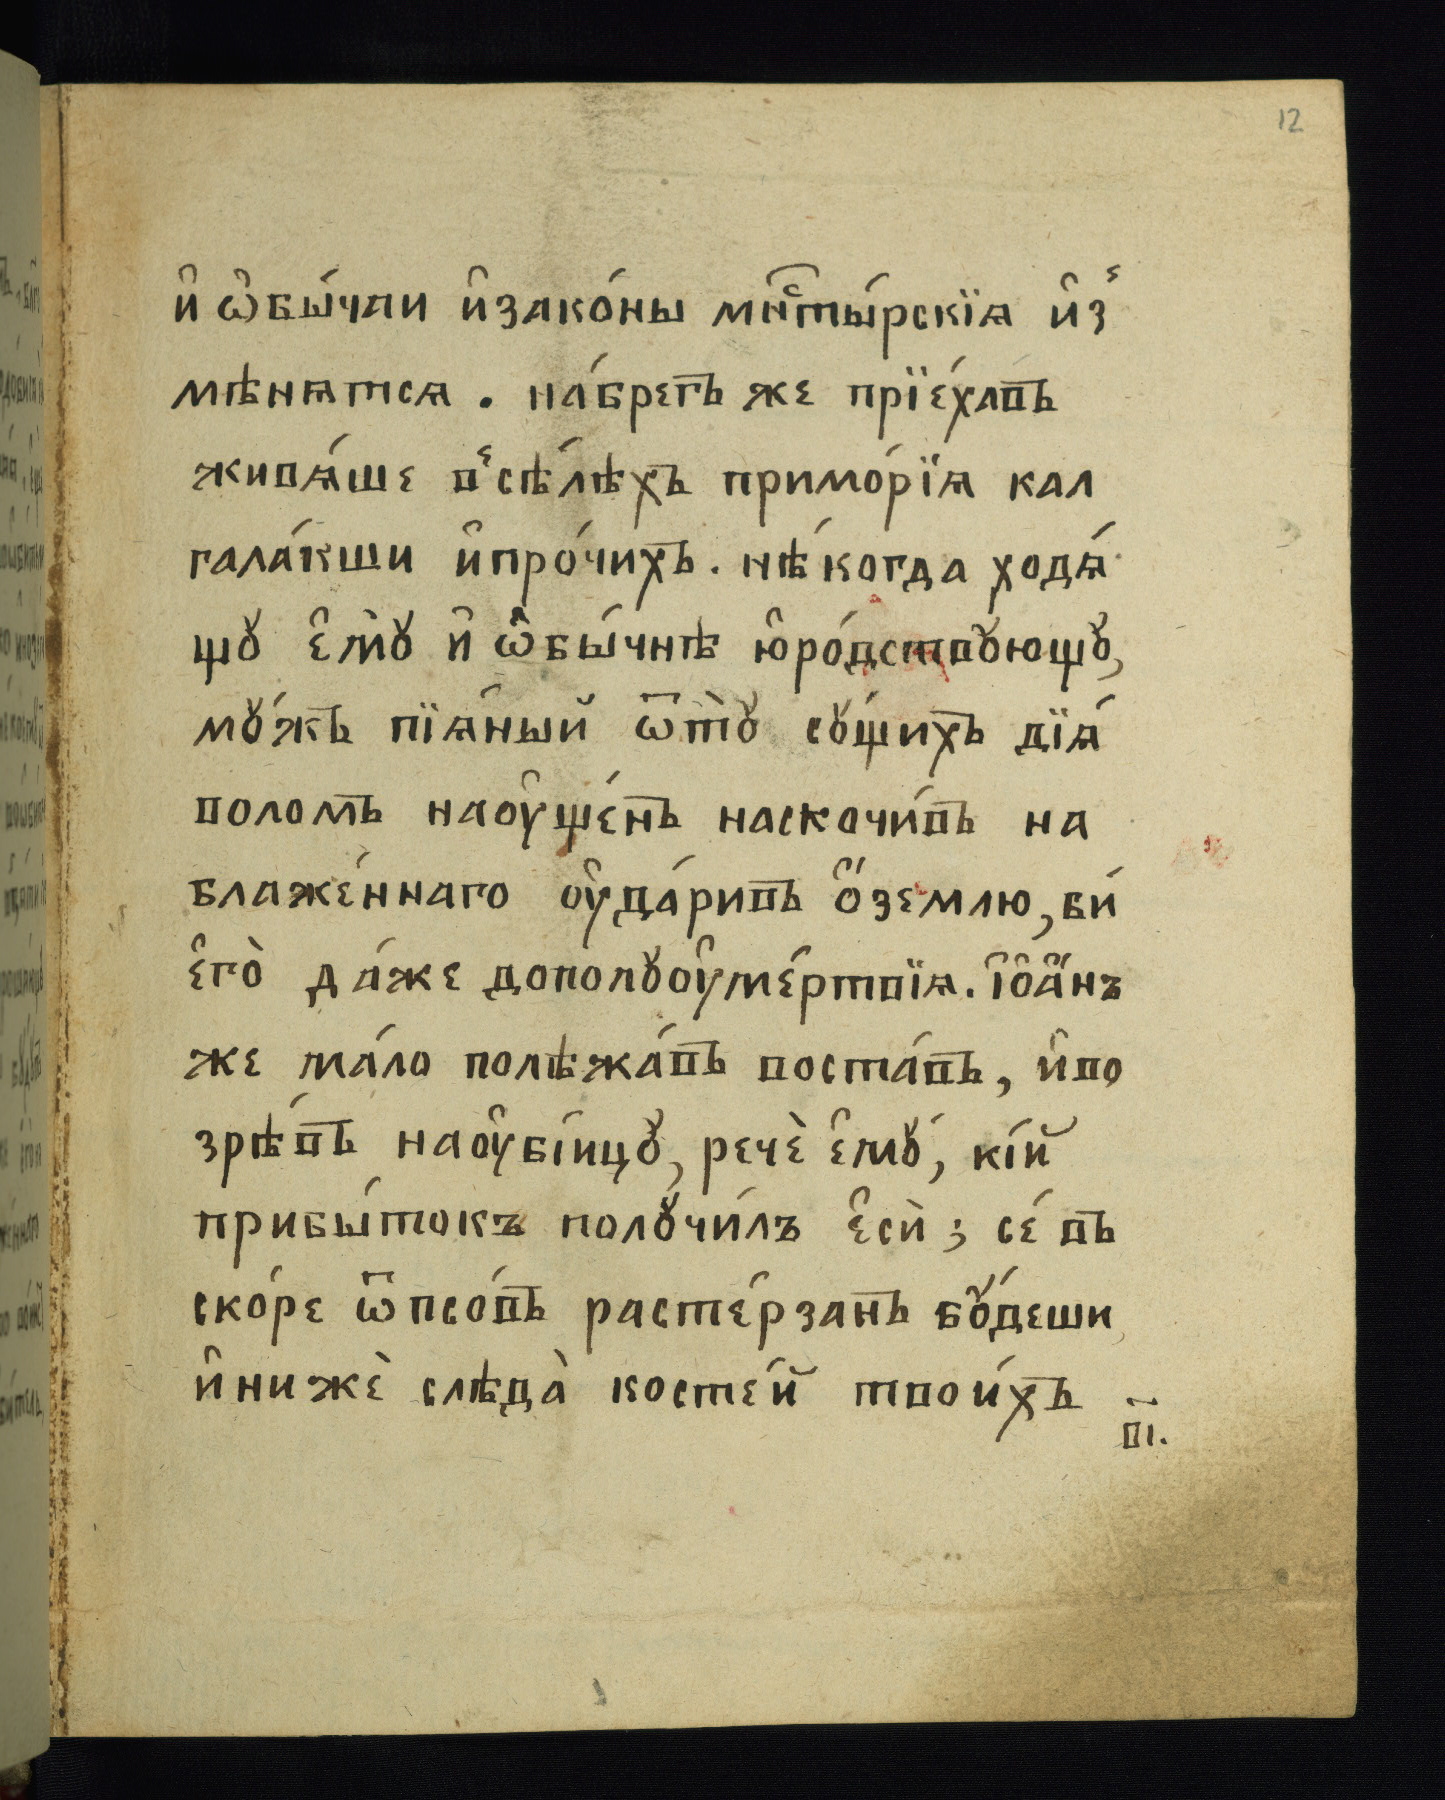 12
и҆ ѡ҆бы́чаи и҆зако́ны мн҇ты́рскїѧ и҆з̾
мѣнѧтсѧ. на́брегъ же прїе́хавъ
живѧ́ше в̾сѣ́лѣхъ примо́рїѧ кал
гала́кши и҆про́чихъ. нѣ́когда ходѧ́
щꙋ є҆мꙋ̀ и҆ ѡ҆бы́чнѣ ю҆ро́дствꙋющꙋ,
мꙋ́жъ пїѧ́ный ѿтꙋ̀ сꙋ́щихъ дїѧ́
воломъ наоу҆ще́нъ наскочи́въ на
блаже́ннаго оу҆да́ривъ ѻ҆́землю, би́
є҆го̀ да́же дополꙋоу҆ме́ртвїѧ. і҆ѻ҆а́ннъ
же ма́ло полѣжа́въ воста́въ, и҆во
зрѣ́въ наоу҆бі́ицꙋ, речѐ є҆мꙋ́, кі́й
прибы́токъ полꙋчи́лъ є҆сѝ; се́ въ
ско́ре ѿпсо́въ расте́рзанъ бꙋ́деши,
и҆нижѐ слѣда̀ косте́й твои́хъ
в҃і.